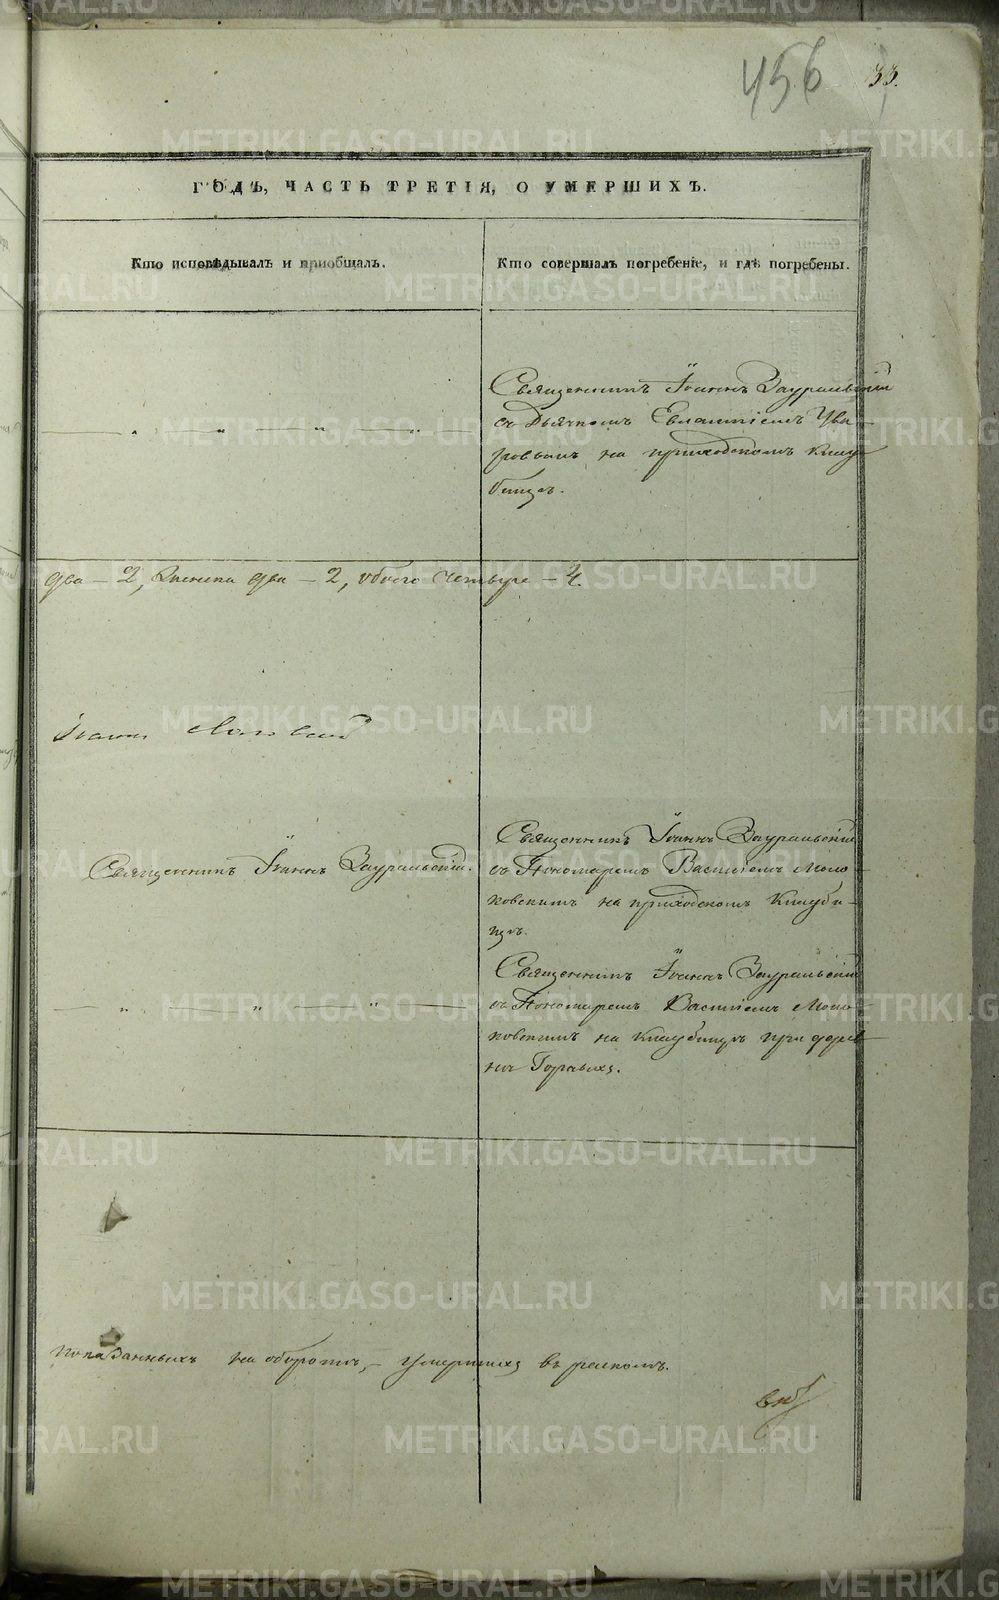 456 33.
ГОДЪ, ЧАСТЬ ТРЕТІЯ, О УМЕРШИХЪ.
Кто исповѣдывалъ и пріобщалъ.
Кто совершалъ погребеніе, и гдѣ погребены.
Священникъ Іоаннъ Зауральскій
съ Дьячкомъ Евлампіемъ Ува-
ровымъ на приходскомъ клад-
бищѣ.
два – 2, женска два – 2, обоего четыре – 4.
Іоаннъ
Священникъ Іоаннъ Зауральскій.
Священникъ Іоаннъ Зауральскій
съ Пономаремъ Василіемъ Моло-
ковскимъ на приходскомъ Кладби-
щѣ.
Священникъ Іоаннъ Зауральскій
съ Пономаремъ Василіемъ Моло-
ковскимъ на кладбищѣ при дерев-
нѣ
показанныхъ на оборотѣ, – умершихъ въ расколѣ.
METRIKI.GASO-URAL.RU